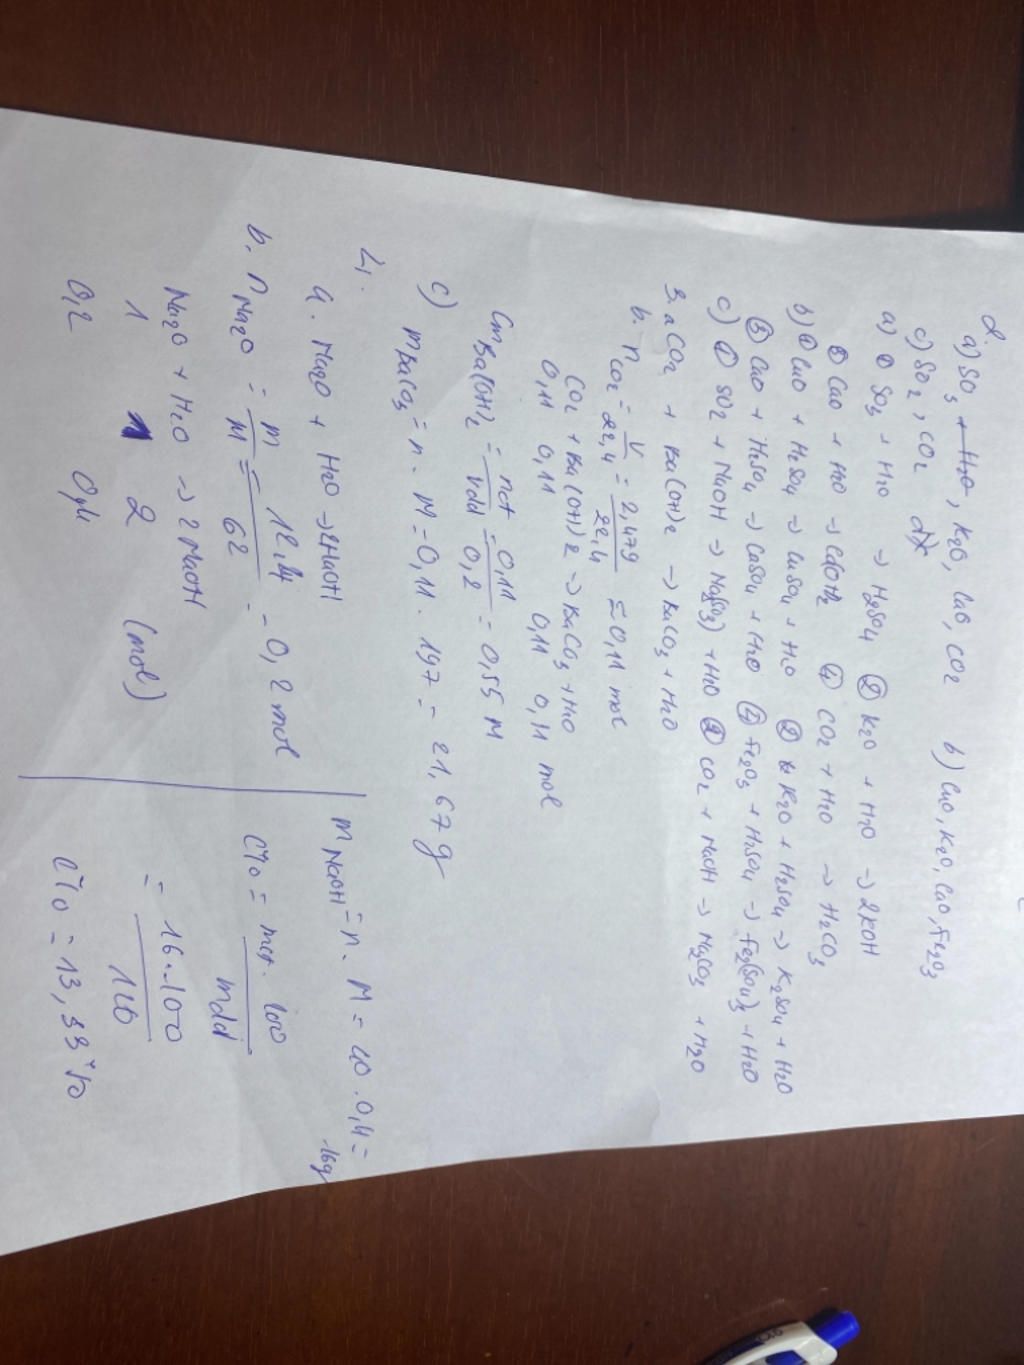 2.
a) SO3, H2O, K2O, CaO, CO2 b) CuO, K2O, CaO, Fe2O3
c) SO2, CO2
a) ① SO3 + H2O → H2SO4 ② K2O + H2O → 2KOH
③ CaO + H2O → Ca(OH)2 ④ CO2 + H2O → H2CO3
b) ① CuO + H2SO4 → CuSO4 + H2O ② K2O + H2SO4 → K2SO4 + H2O
③ CaO + H2SO4 → CaSO4 + H2O ④ Fe2O3 + H2SO4 → Fe2(SO4)3 + H2O
c) ① SO2 + NaOH → Na(SO3) + H2O ② CO2 + NaOH → Na2CO3 + H2O
3. a CO2 + Ba(OH)2 → BaCO3 + H2O
b. nCO2 = V/22,4 = 2,479/22,4 ≈ 0,11 mol
CO2 + Ba(OH)2 → BaCO3 + H2O
0,11 0,11 0,11 0,11 mol
CMBa(OH)2 = nct/Vdd = 0,11/0,2 = 0,55 M
c) mBaCO3 = n. M = 0,11. 197 = 21,67 g
4.
a. Na2O + H2O → 2NaOH
b. nNa2O = m/M = 12,4/62 = 0,2 mol
Na2O + H2O → 2NaOH
1 1 2 (mol)
0,2 0,4
mNaOH = n. M = 40.0,4 =
16g
C% = mct.100/mdd
= 16.100/120
C% = 13,33%